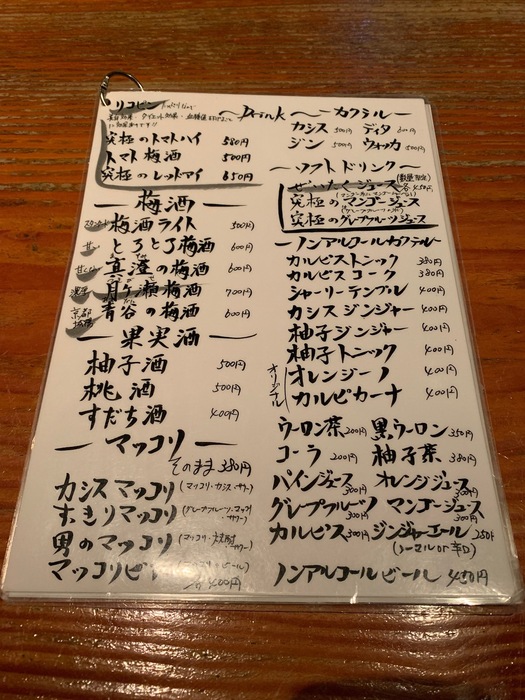 リコピン
~Drink~
究極のトマトハイ 580円
トマト梅酒 500円
究極のレッドアイ 650円
梅酒
梅酒ライト 500円
とろとろ梅酒 600円
真澄の梅酒 600円
月ヶ瀬梅酒 700円
青谷の梅酒 600円
果実酒
柚子酒 500円
桃酒 500円
すだち酒 400円
マッコリ
そのまま 380円
カシスマッコリ(マッコリ・カシス・サワー)
すっきりマッコリ
男のマッコリ(マッコリ・焼酎・サワー)
各400円
カクテル
カシス 500円 ディタ 600円
ジン 500円 ウォッカ 500円
ソフトドリンク
ぜいたくジュース(数量限定)各450円
究極のマンゴージュース
究極のグレプフルーツジュース
ノンアルコールカクテル
カルピストニック 380円
カルピスコーク 380円
シャーリーテンプル 400円
カシスジンジャー 400円
柚子ジンジャー 400円
柚子トニック 400円
オリジナル
オレンジーノ 400円
カルピカーナ 400円
ウーロン茶 200円 黒ウーロン 350円
コーラ 200円 柚子茶 380円
パインジュース 300円 オレンジジュース 300円
グレプフルーツ 300円 マンゴージュース 300円
カルピス 300円 ジンジャーエール 250円
(ノーマル or 辛口)
ノンアルコールビール 450円